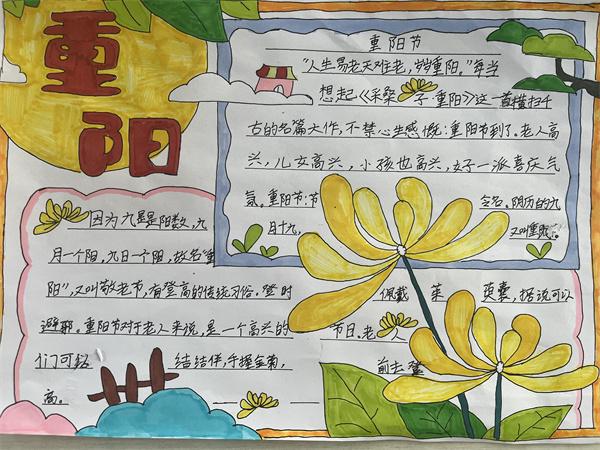 重阳
重阳节
"人生易老天难老，岁岁重阳。"每当
想起《采桑子·重阳》这一首横扫千
古的名篇大作，不禁心生感慨：重阳节到了。老人高
兴，儿女高兴，小孩也高兴，好一派喜庆气
氛。重阳节：节令名。阴历的九
月十九，又叫重
因为九是阳数，九
月一个阳，九日一个阳，故名"重
阳"，又叫敬老节，有登高的传统习俗。登时
佩戴茱萸囊，据说可以
避邪。重阳节对于老人来说，是一个高兴的
节日。老人
们可结结伴，手握金菊，
前去登
高。